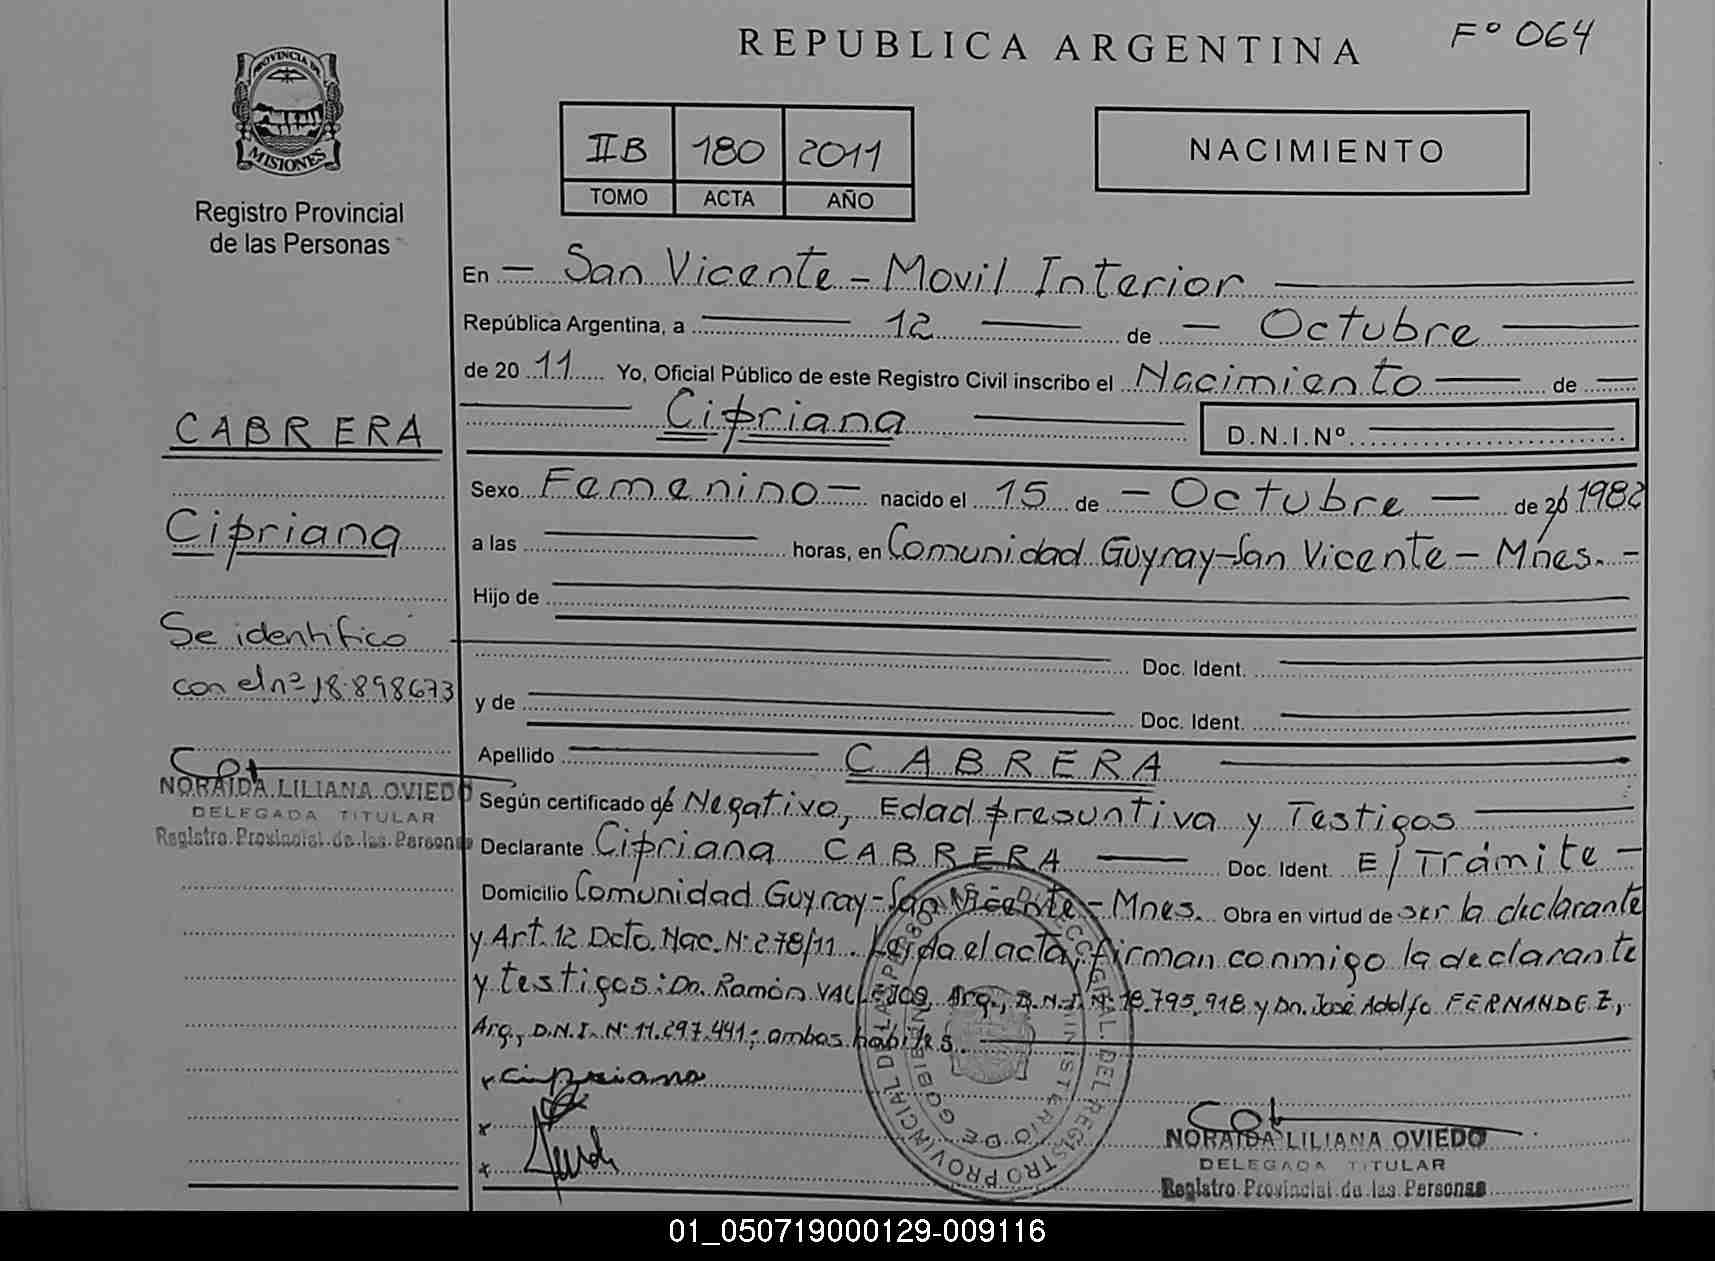 REPUBLICA ARGENTINA
Fº 064
PROVINCIA DE
MISIONES
Registro Provincial
de las Personas
IIB 180 2011
TOMO ACTA AÑO
NACIMIENTO
En San Vicente - Movil Interior
República Argentina, a 12 de Octubre
de 20 11 Yo, Oficial Público de este Registro Civil inscribo el Nacimiento de
Cipriana D.N.I.Nº
CABRERA
Cipriana
Se identifico
con el nº 18.898673
NORAIDA LILIANA OVIEDO
DELEGADA TITULAR
Registro Provincial de las Personas
Sexo Femenino - nacido el 15 de - Octubre - de 20 1982
a las horas, en Comunidad Guyray-San Vicente - Mnes. -
Hijo de
Doc. Ident.
y de
Doc. Ident.
Apellido CABRERA
Según certificado de Negativo, Edad presuntiva y Testigos
Declarante Cipriana CABRERA Doc. Ident. E/Trámite -
Domicilio Comunidad Guyray-San Vicente - Mnes. Obra en virtud de ser la declarante
y Art. 12 Dcto. Nac. Nº 278/11. Leida el acta, firman conmigo la declarante
y testigos: Dn. Ramón VALLEJOS, Arg., D.N.I. Nº 18.795.918 y Dn. José Adolfo FERNANDEZ,
Arg., D.N.I. Nº 11.297.441; ambos habiles.
x Cipriana
x
x
NORAIDA LILIANA OVIEDO
DELEGADA TITULAR
Registro Provincial de las Personas
01_050719000129-009116